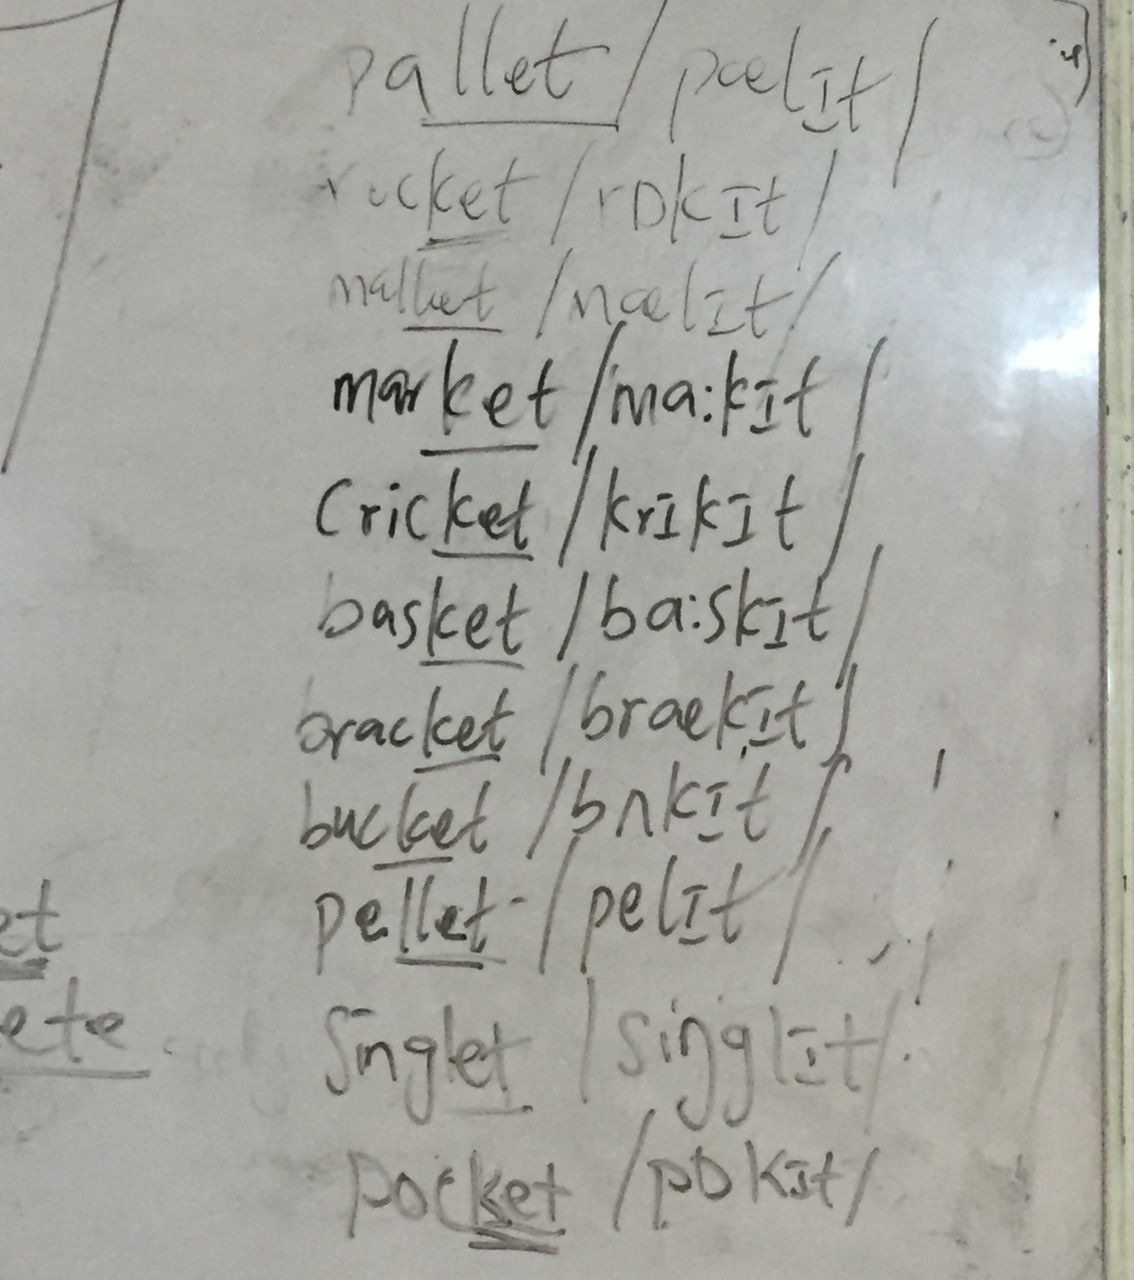 pallet /pælɪt/
rocket /rɒkɪt/
mallet /mælɪt/
market /mɑ:kɪt/
Cricket /krɪkɪt/
basket /bɑ:skɪt/
bracket /brækɪt/
bucket /bʌkɪt/
pellet /pelɪt/
et
ete
Singlet /siŋglɪt/
pocket /pɒkɪt/